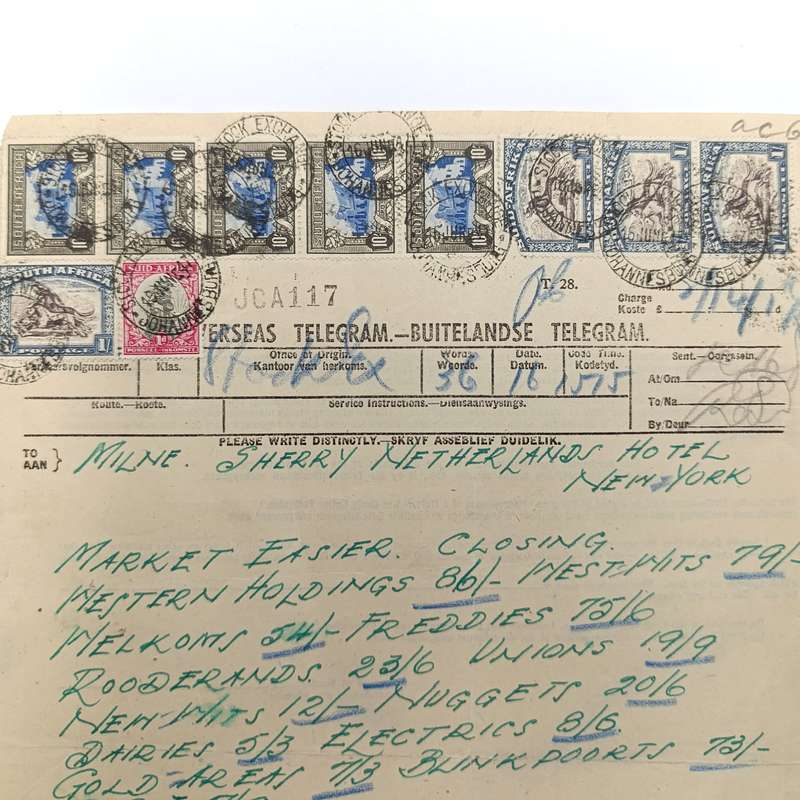 acG
SOUTH AFRICA 10/- SUID-AFRIKA 10/- SOUTH AFRICA 10/- 10/- 10/- SUID-AFRIKA 1/- 1/- SUID-AFRIKA 1/-
STOCK EXCHANGE
JOHANNESBURG
SOUTH AFRICA
POSTAGE 1/-
SUID-AFRIKA
POSSEËL-INKOMSTE
JCA117
T. 28.
Charge
Koste £ d
OVERSEAS TELEGRAM.—BUITELANDSE TELEGRAM.
Klas.
Office of Origin.
Kantoor van herkoms.
Words.
Woorde.
Date.
Datum.
Code Time.
Kodetyd.
Sent.—Oorgesein.
36 16 1515
At/Om
Route.—Roete.
Service Instructions.—Diensaanwysings.
To/Na
By/Deur
PLEASE WRITE DISTINCTLY.—SKRYF ASSEBLIEF DUIDELIK.
TO
AAN } MILNE. SHERRY NETHERLANDS HOTEL
NEW YORK
MARKET EASIER. CLOSING.
WESTERN HOLDINGS 86/- WEST-WITS 79/-
WELKOMS 54/- FREDDIES 75/6
ROODERANDS 23/6 UNIONS 19/9
NEW-WITS 12/- NUGGETS 20/6
DAIRIES 5/3 ELECTRICS 8/6
GOLD AREAS 7/3 BLINKPOORTS 73/-